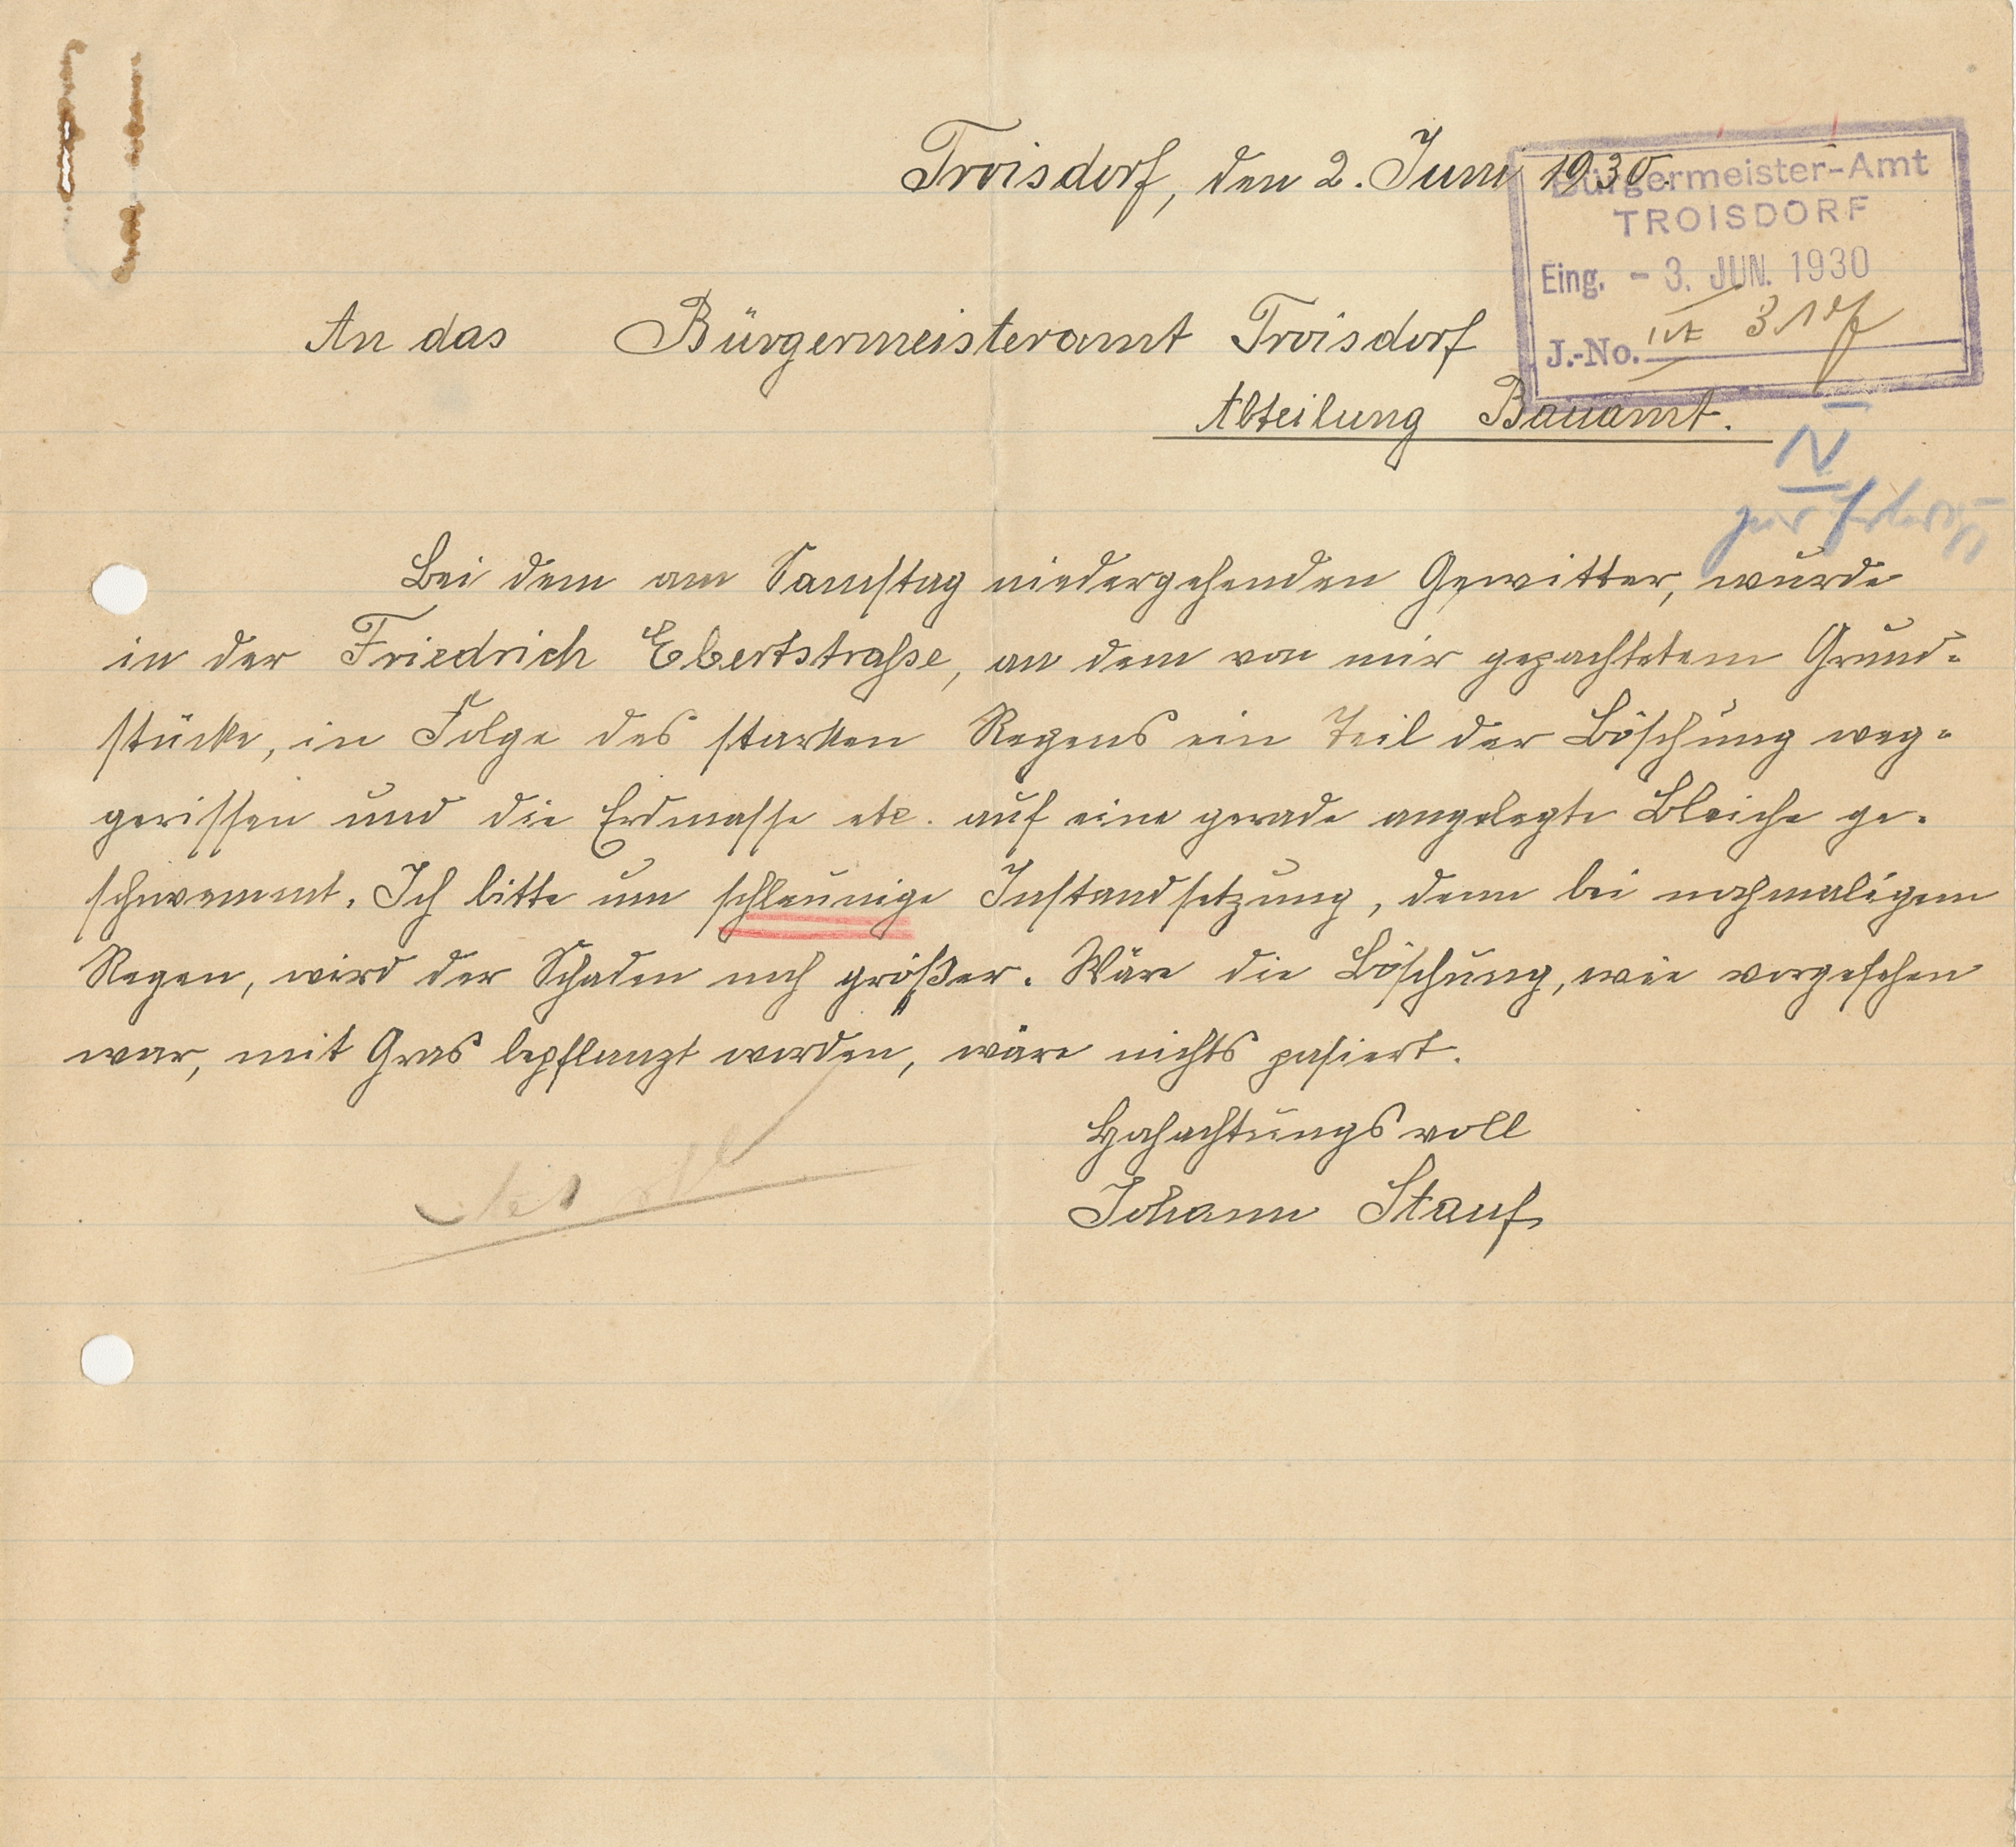 Troisdorf, den 2. Juni 1930.
Bürgermeister-Amt
TROISDORF
Eing. - 3. JUN. 1930
J.-No.
An das Bürgermeisteramt Troisdorf
Abteilung Bauamt.
IV
zur
Bei dem am Samstag niedergehenden Gewitter, wurde
in der Friedrich Ebertstraße, an dem von mir gepachtetem Grund-
stücke, in Folge des starken Regens ein Teil der Böschung weg-
gerissen und die Erdmasse etc. auf eine gerade angelegte Bleiche ge-
schwemmt. Ich bitte um schleunige Instandsetzung, denn bei nochmaligem
Regen, wird der Schaden noch größer. Wäre die Böschung, wie vorgesehen
war, mit Gras bepflanzt worden, wäre nichts pasiert.
Hochachtungsvoll
Johann Stauf